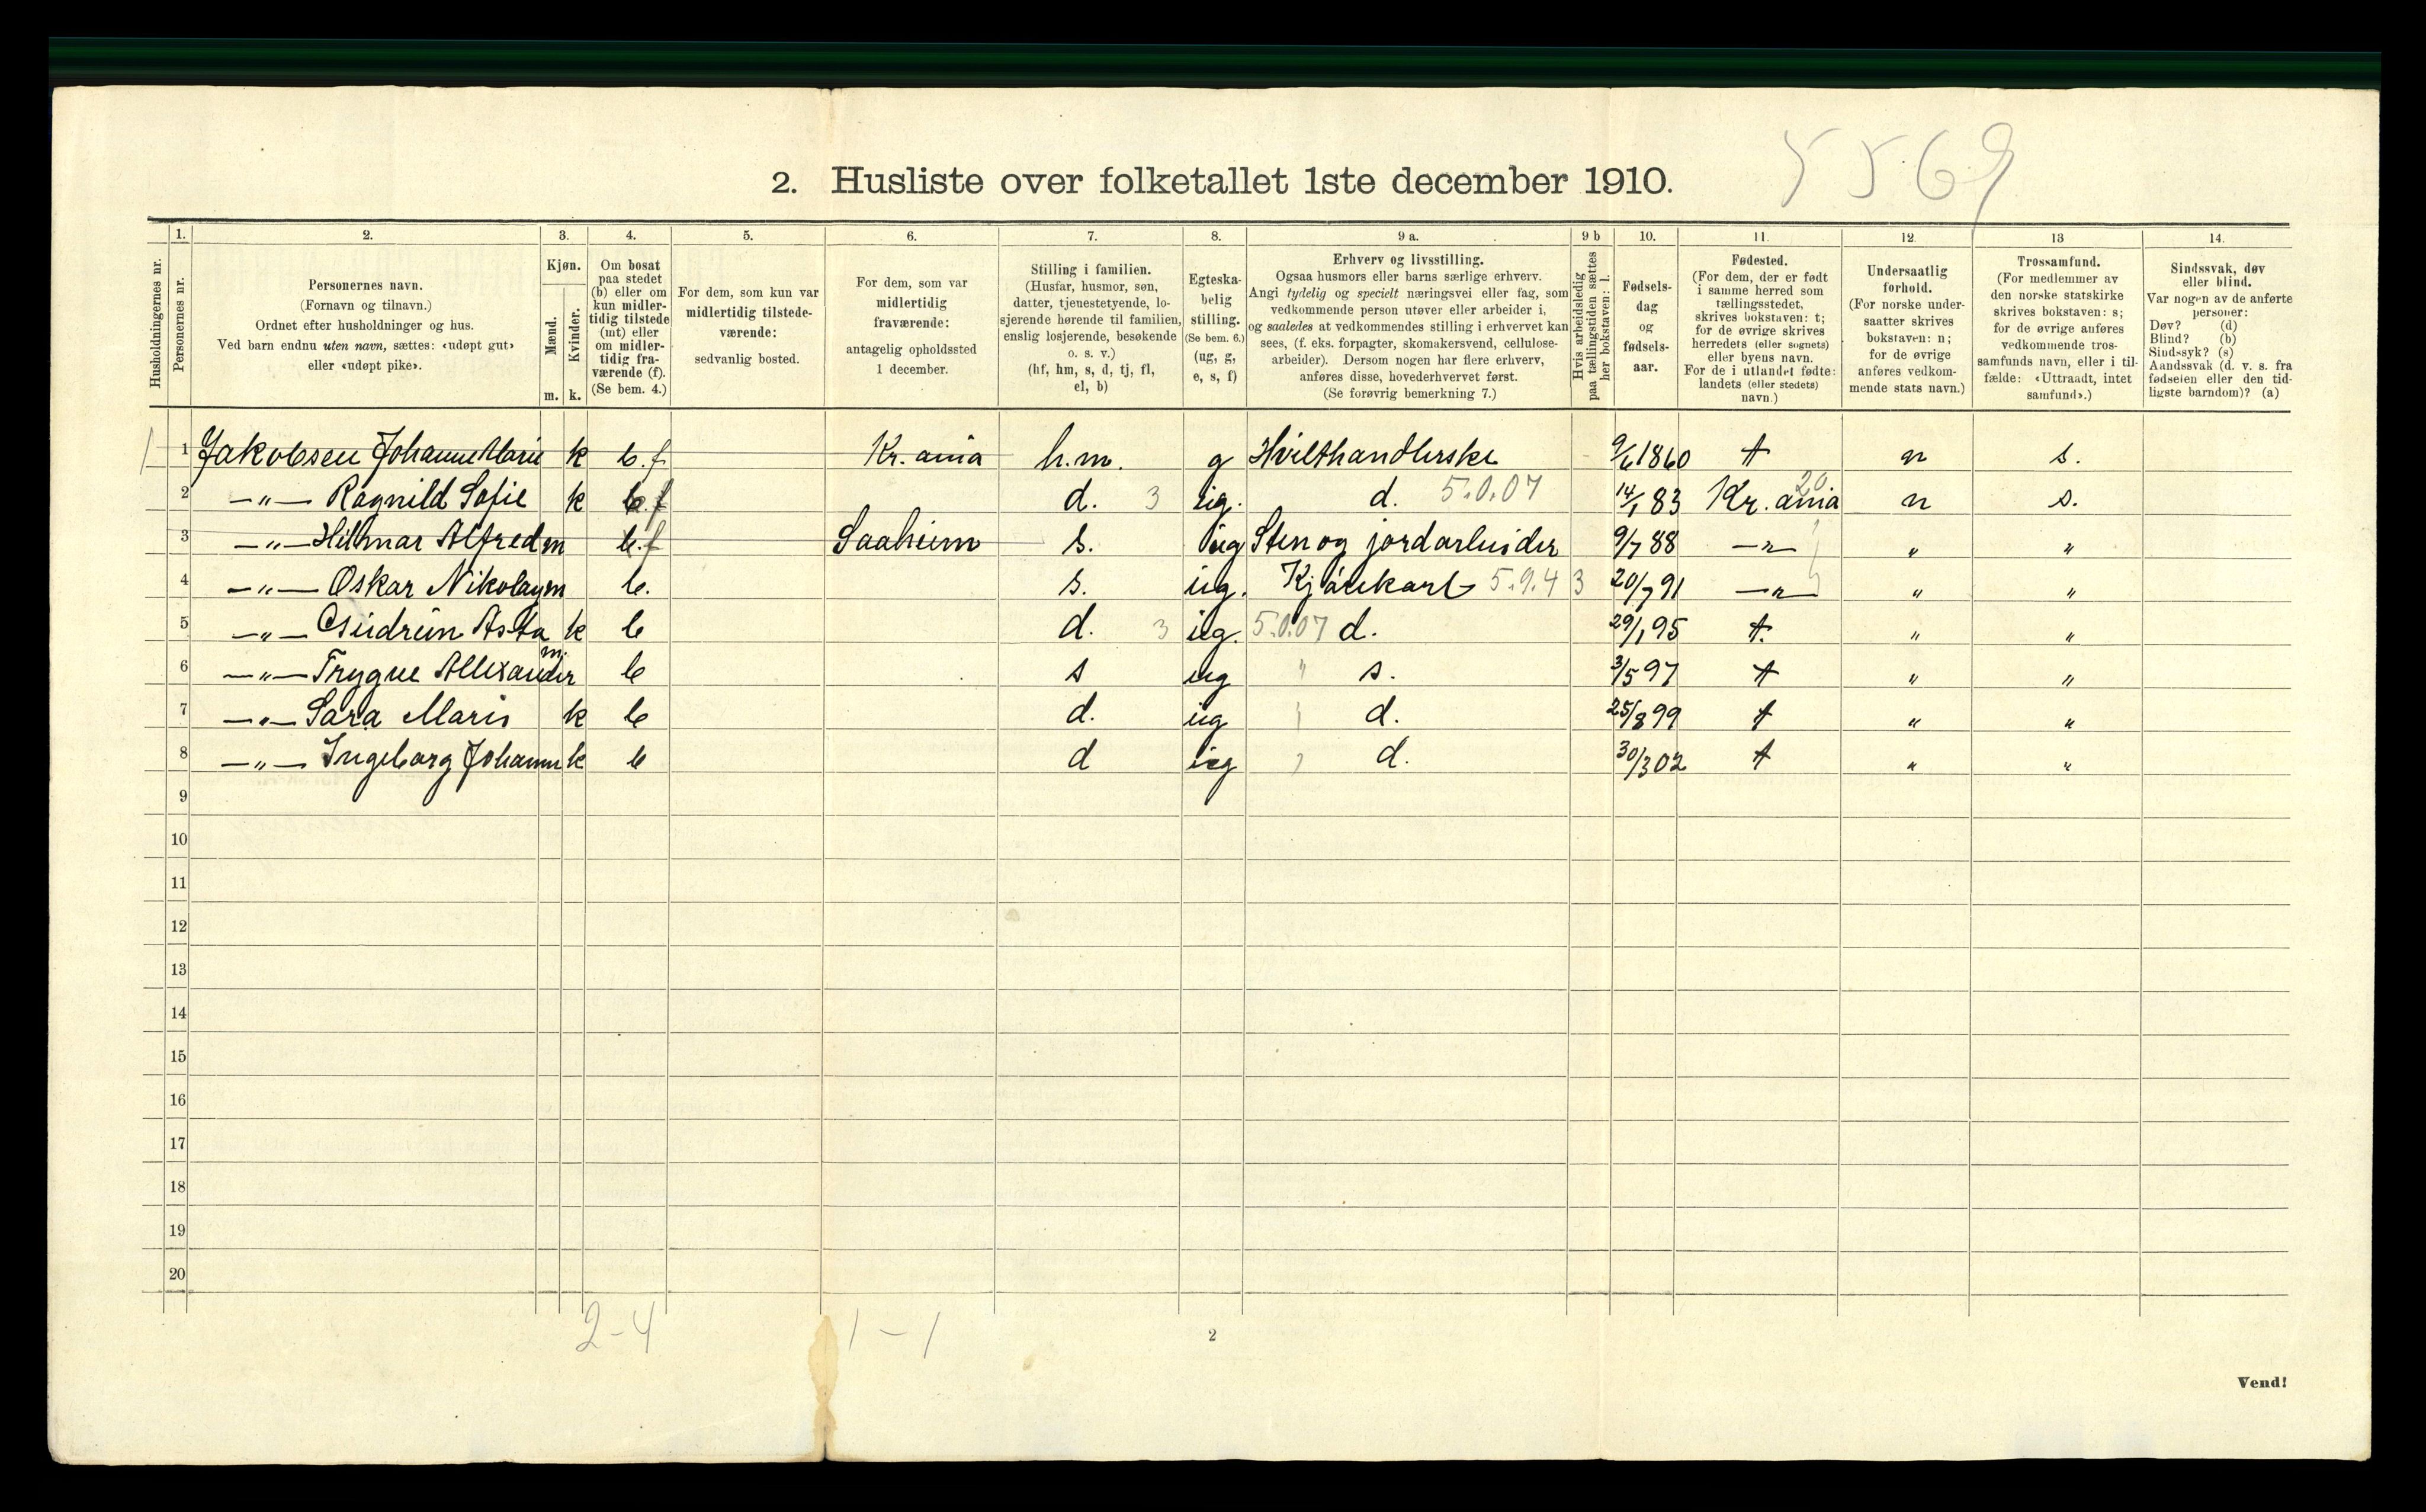 5569
2. Husliste over folketallet 1ste december 1910.
1. 2. 3. 4. 5. 6. 7. 8. 9 a. 9 b 10. 11. 12. 13 14.
Husholdningernes nr.
Personernes nr.
Personernes navn.
(Fornavn og tilnavn.)
Ordnet efter husholdninger og hus.
Ved barn endnu uten navn, sættes: «udøpt gut»
eller «udøpt pike».
Kjøn.
Mænd.
Kvinder.
m. k.
Om bosat
paa stedet
(b) eller om
kun midler-
tidig tilstede
(mt) eller
om midler-
tidig fra-
værende (f).
(Se bem. 4.)
For dem, som kun var
midlertidig tilstede-
værende:
sedvanlig bosted.
For dem, som var
midlertidig
fraværende:
antagelig opholdssted
1 december.
Stilling i familien.
(Husfar, husmor, søn,
datter, tjenestetyende, lo-
sjerende hørende til familien,
enslig losjerende, besøkende
o. s. v.)
(hf, hm, s, d, tj, fl,
el, b)
Egteska-
belig
stilling.
(Se bem. 6.)
(ug, g,
e, s, f)
Erhverv og livsstilling.
Ogsaa husmors eller barns særlige erhverv.
Angi tydelig og specielt næringsvei eller fag, som
vedkommende person utøver eller arbeider i,
og saaledes at vedkommendes stilling i erhvervet kan
sees, (f. eks. forpagter, skomakersvend, cellulose-
arbeider). Dersom nogen har flere erhverv,
anføres disse, hovederhvervet først.
(Se forøvrig bemerkning 7.)
Hvis arbeidsledig
paa tællingstiden sættes
her bokstaven: l.
Fødsels-
dag
og
fødsels-
aar.
Fødested.
(For dem, der er født
i samme herred som
tællingsstedet,
skrives bokstaven: t;
for de øvrige skrives
herredets (eller sognets)
eller byens navn.
For de i utlandet fødte:
landets (eller stedets)
navn.)
Undersaatlig
forhold.
(For norske under-
saatter skrives
bokstaven: n;
for de øvrige
anføres vedkom-
mende stats navn.)
Trossamfund.
(For medlemmer av
den norske statskirke
skrives bokstaven: s;
for de øvrige anføres
vedkommende tros-
samfunds navn, eller i til-
fælde: «Uttraadt, intet
samfund».)
Sindssvak, døv
eller blind.
Var nogen av de anførte
personer:
Døv? (d)
Blind? (b)
Sindssyk? (s)
Aandssvak (d. v. s. fra
fødselen eller den tid-
ligste barndom)? (a)
1 1 Jakobsen Johanne Marie k b.f Kr.ania h.m. g 9/6 1860 t n s.
2 —"— Ragnild Sofie k b.f d. 3 ug. d. 5.0.07 14/1 83 Kr.ania 20 n s.
3 —"— Hilmar Alfred m b.f Saaheim s. ug Sten og jordarbeider 9/7 88 —"— " "
4 —"— Oskar Nikolay m b. s. ug. Kjørekarl 5.9.4 3 20/7 91 —"— " "
5 —"— Gudrun Asta k b d. 3 ug. 5.0.07 d. 29/1 95 t. " "
6 —"— Trygve Allexander m. b s ug " s. 3/5 97 t " "
7 —"— Sara Maris k b d. ug d. 25/8 99 t " "
8 —"— Ingeborg Johanne k b d ug d. 30/3 02 t " "
9
10
11
12
13
14
15
16
17
18
19
20
2-4 1-1
2
Vend!